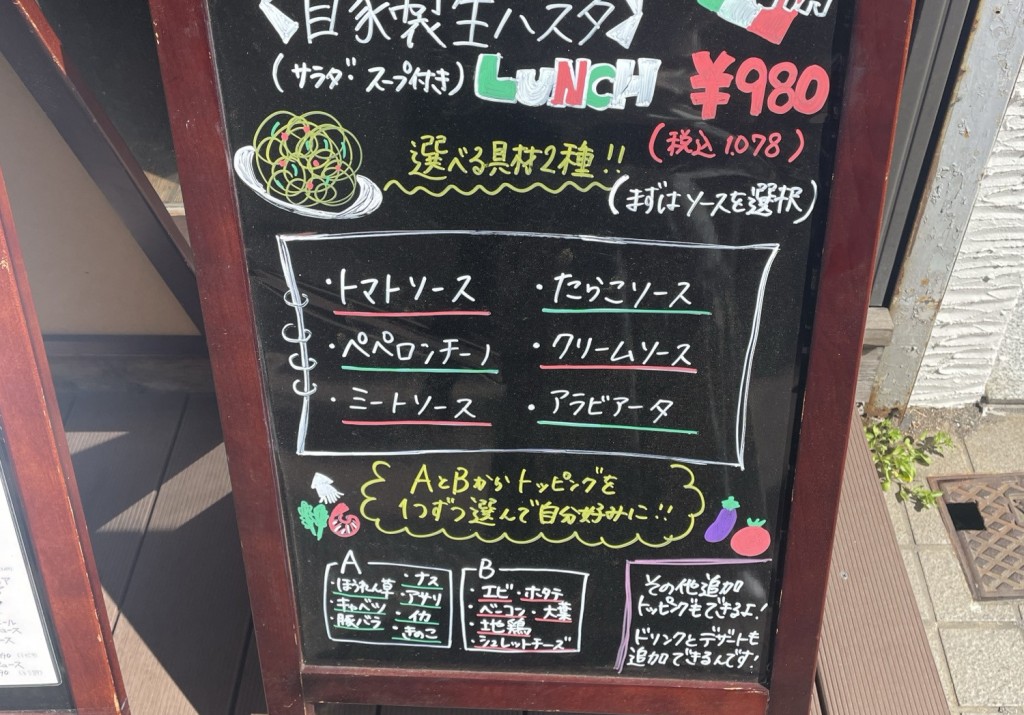 【自家製生パスタ】
(サラダ・スープ付き) LUNCH ¥980
(税込 1.078)
選べる具材2種!!
(まずはソースを選択)
・トマトソース ・たらこソース
・ペペロンチーノ ・クリームソース
・ミートソース ・アラビアータ
AとBからトッピングを
1つずつ選んで自分好みに!!
A
・ほうれん草 ・ナス
・キャベツ ・アサリ
・豚バラ ・イカ
・きのこ
B
・エビ ・ホタテ
・ベーコン ・大葉
・地鶏
・シュレットチーズ
その他追加
トッピングもできるよ!
ドリンクとデザートも
追加できるんです!